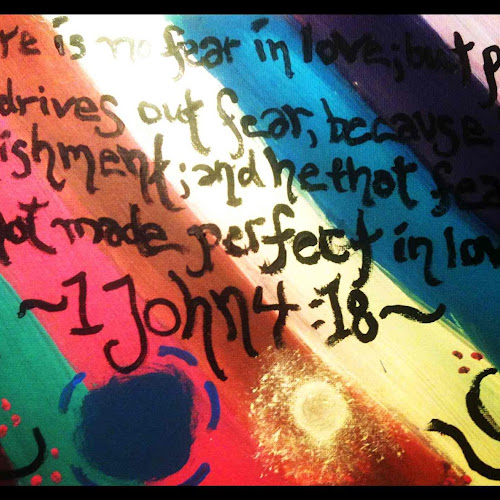 re is no fear in love; but p
drives out fear, because
ishment; and he that fea
not made perfect in lov
~1 John 4:18~